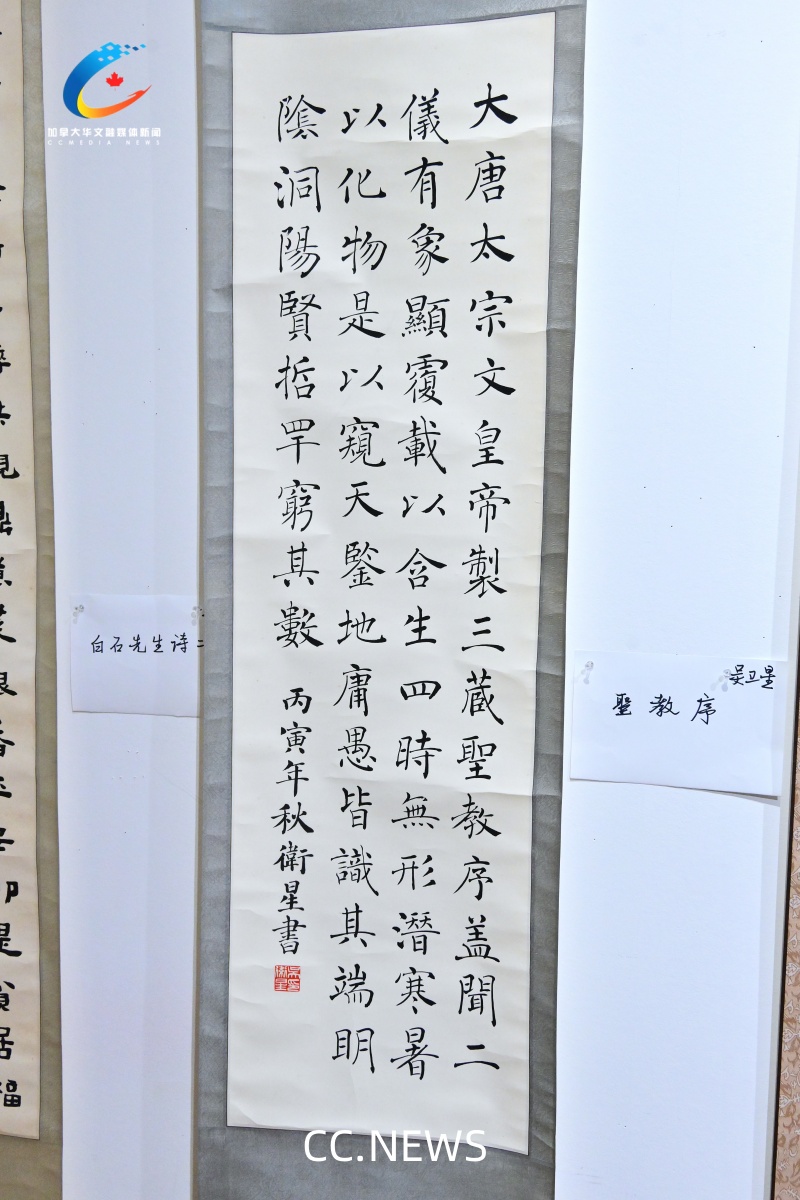 加拿大华文融媒体新闻
CCMEDIA NEWS
大唐太宗文皇帝製三藏聖教序盖聞二
儀有象顯覆載以含生四時無形潛寒暑
以化物是以窺天鑒地庸愚皆識其端明
陰洞陽賢哲罕窮其數
丙寅年秋衛星書
白石先生诗二
吴卫星
聖教序
CC.NEWS